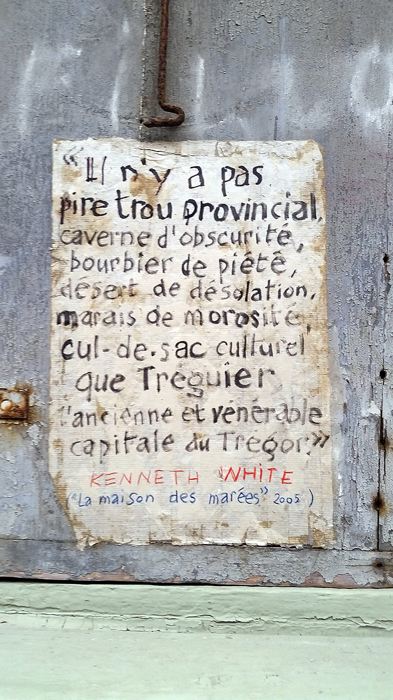 “Il n'y a pas
pire trou provincial,
caverne d'obscurité,
bourbier de piété,
desert de désolation,
marais de morosité,
cul-de-sac culturel
que Tréguier
l'ancienne et vénérable
capitale du Trégor.”
KENNETH WHITE
("La maison des marées" 2005)